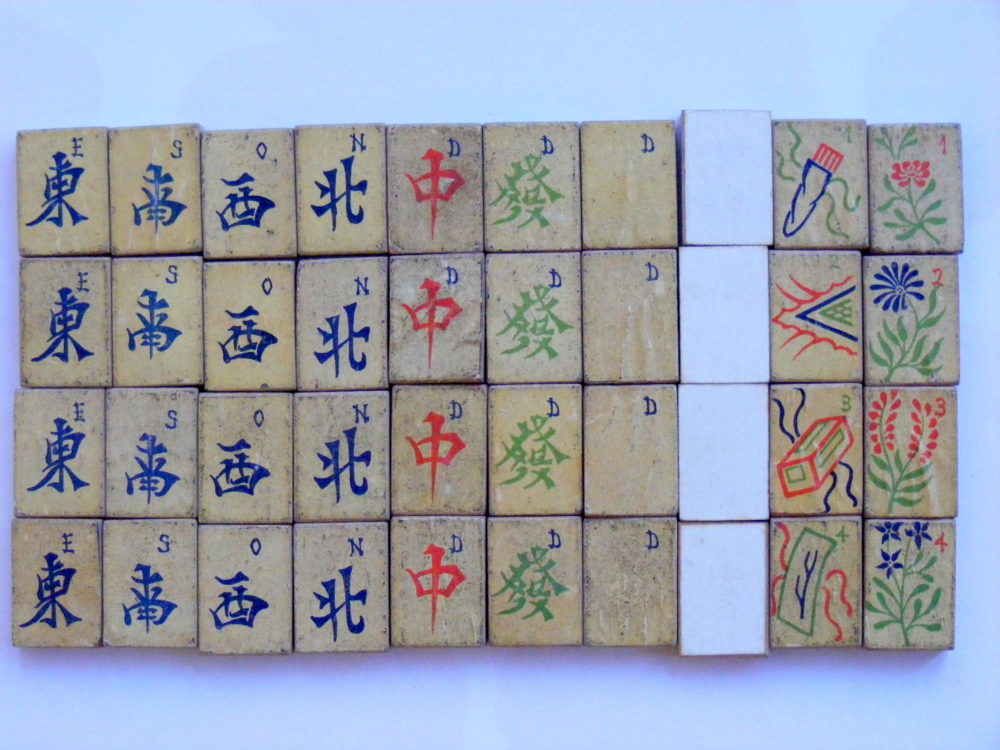 E S O N D D D 1 1
東 南 西 北 中 發
E S O N D D D 2 2
東 南 西 北 中 發
E S O N D D D 3 3
東 南 西 北 中 發
E S O N D D D 4 4
東 南 西 北 中 發